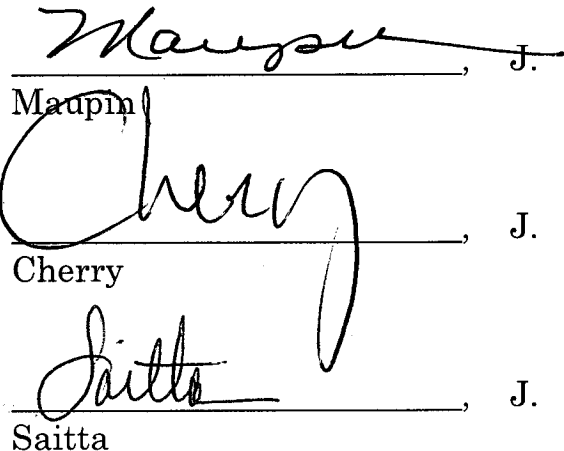 Maupin, J.
Maupin
Cherry, J.
Cherry
Saitta, J.
Saitta